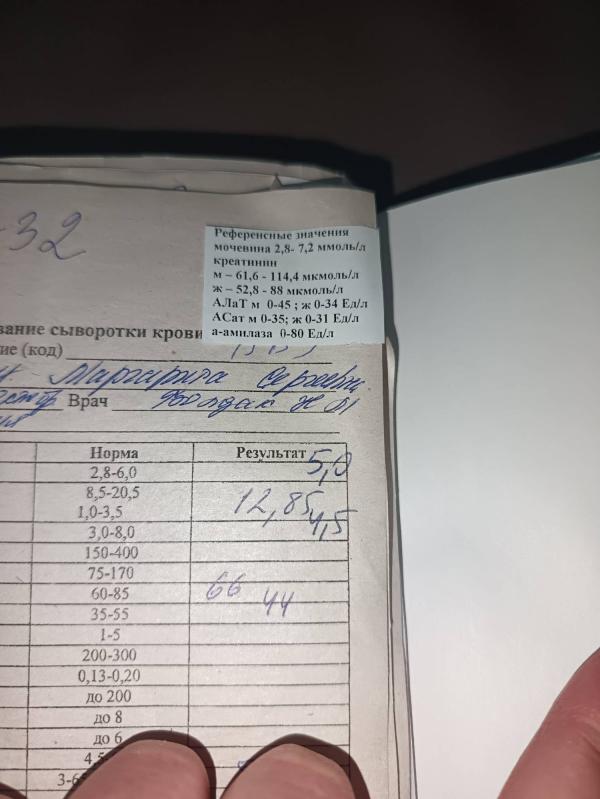 -32
Референсные значения
мочевина 2,8- 7,2 ммоль/л
креатинин
м – 61,6 - 114,4 мкмоль/л
ж – 52,8 - 88 мкмоль/л
АЛаТ м 0-45 ; ж 0-34 Ед/л
АСат м 0-35; ж 0-31 Ед/л
а-амилаза 0-80 Ед/л
вание сыворотки крови
ие (код)
Маргарита
Врач
Норма Результат
2,8-6,0 5,0
8,5-20,5 12,85
1,0-3,5
3,0-8,0 4,5
150-400
75-170
60-85 66
35-55 44
1-5
200-300
0,13-0,20
до 200
до 8
до 6
4,5
3-6